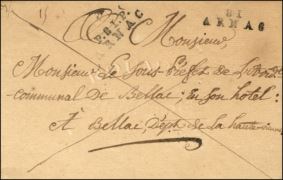 P.81.P.
ARNAC
81
ARNAC
Monsieur
Monsieur Le Sous-Préfet de
communal De Bellac, En son hôtel:
A Bellac, Dépt de la haute vienne